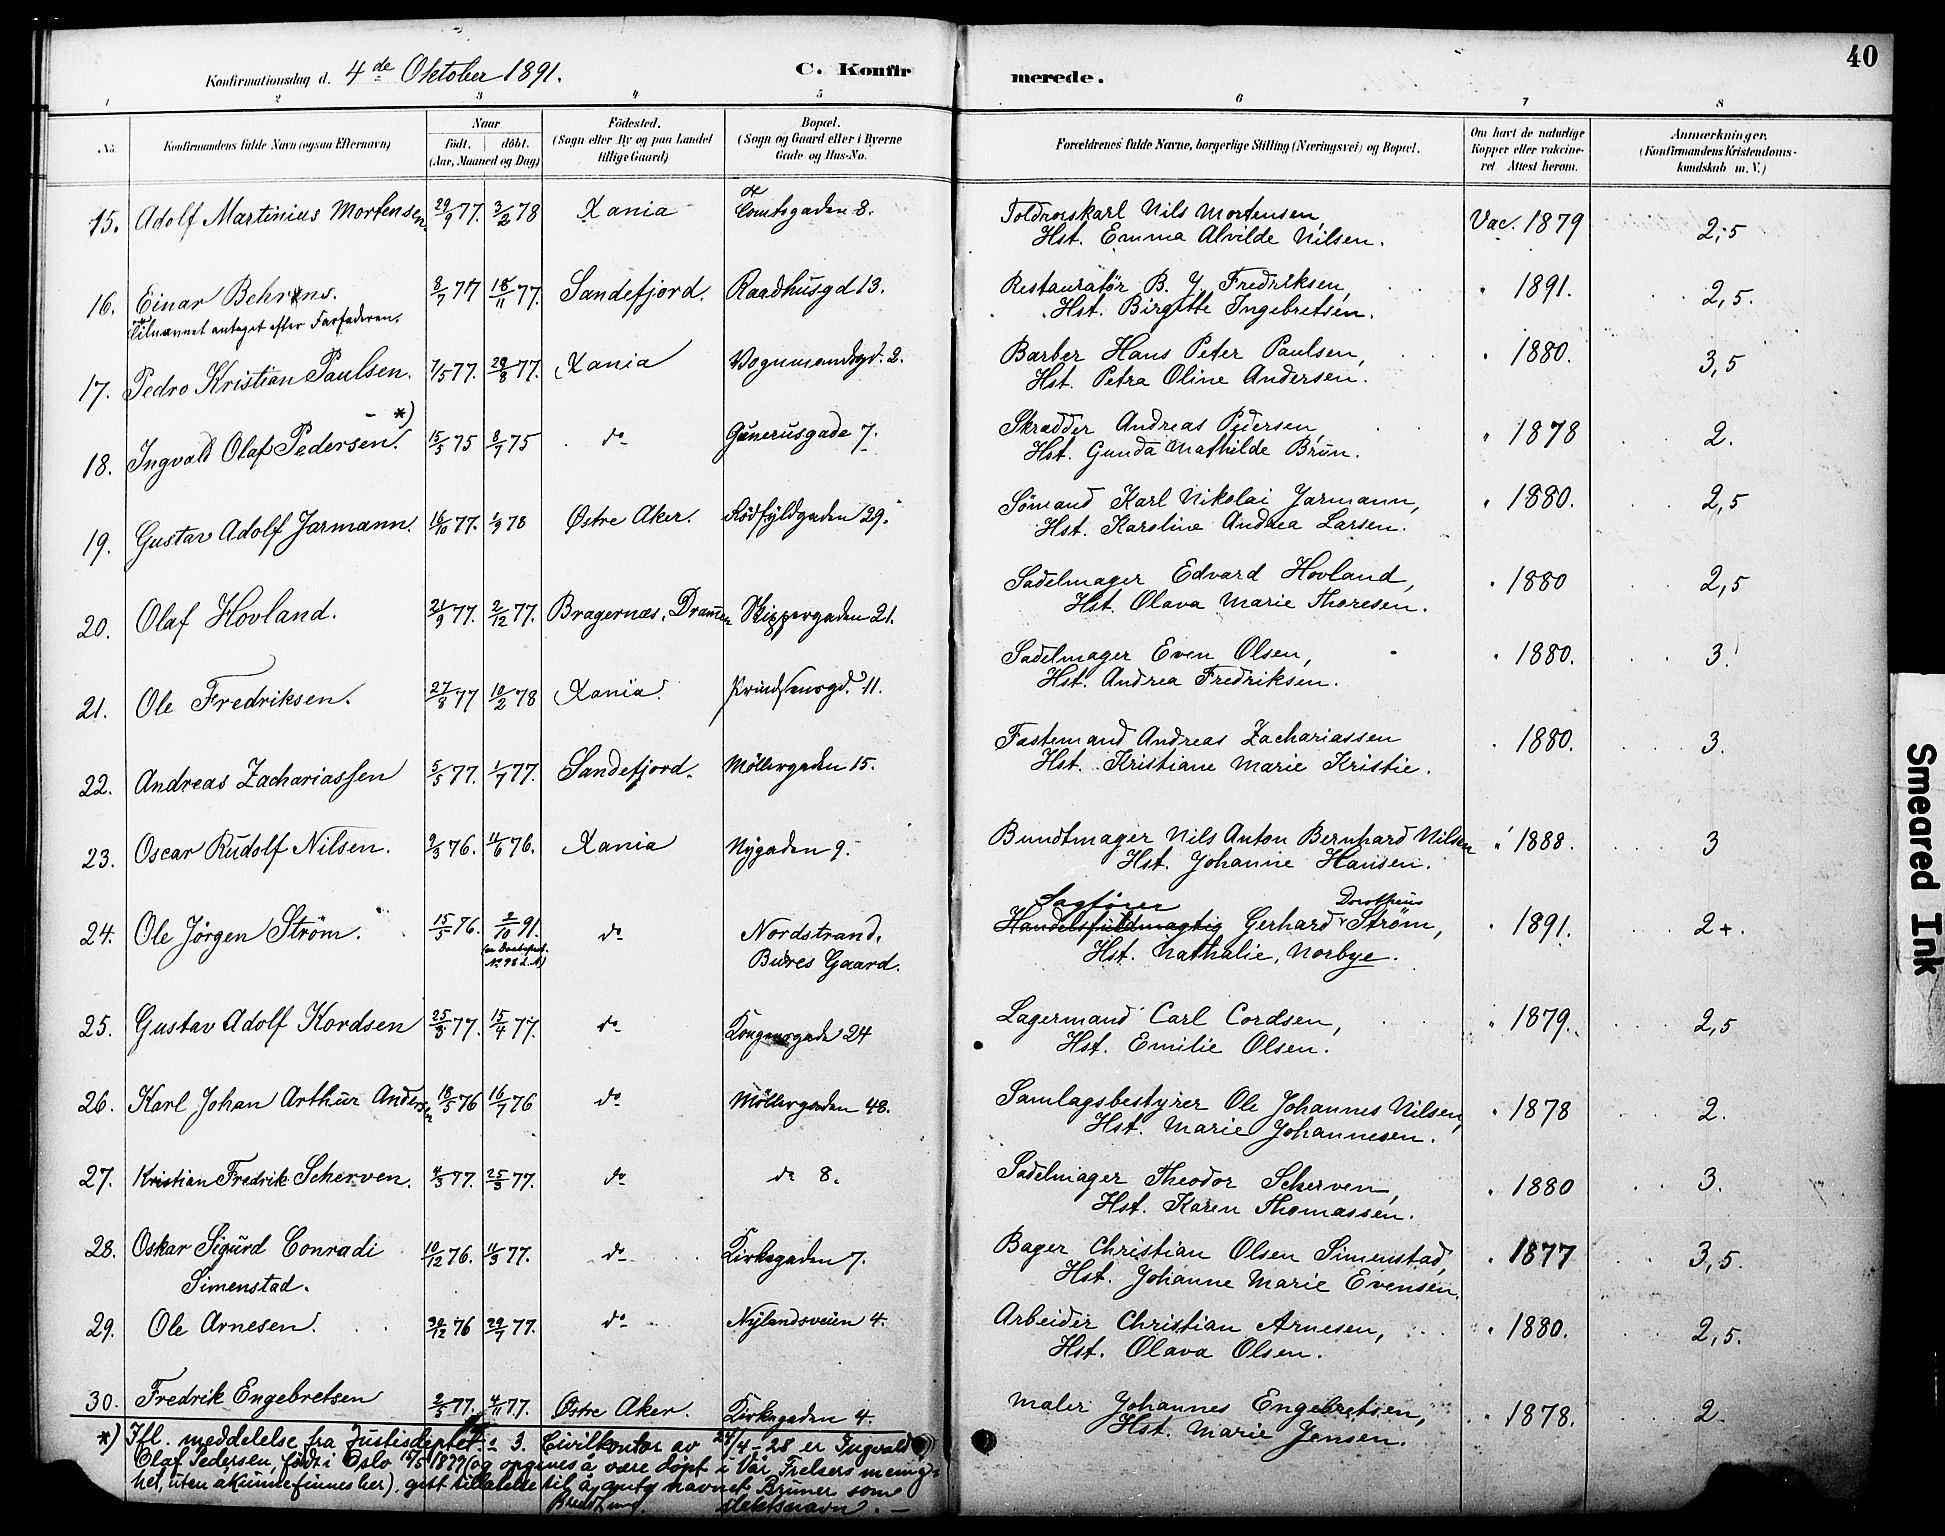 40
Konfirmationsdag d. 4de Oktober 1891. C. Konfirmerede.
1 2 3 4 5 6 7 8
No. Konfirmandens fulde Navn (ogsaa Efternavn) Naar födt. döbt. (Aar, Maaned og Dag) Födested. (Sogn eller By og paa Landet tillige Gaard) Bopæl. (Sogn og Gaard eller i Byerne Gade og Hus-No. Forældrenes fulde Navne, borgerlige Stilling (Næringsvei) og Bopæl. Om havt de naturlige Kopper eller vakcineret Attest herom. Anmærkninger. (Konfirmandens Kristendomskundskab m. V.)
15. Adolf Martinius Mortensen 29/9 77. 3/2 78 Xania Tomtegaden 8. Nils Mortensen, Vac. 1879 2,5
Hst. Emma Alvilde Nilsen.
16. Einar Behrens. 8/7 77 18/11 77. Sandefjord. Raadhusgd 13. Restauratör B. Y. Fredriksen, " 1891. 2,5.
Tilnavnet antaget efter Farfaderen. Hst. Birgitte Ingebretsen.
17. Pedro Kristian Paulsen. 7/5 77. 29/8 77. Xania Vognmandsgd. 2. Barber Hans Peter Paulsen, " 1880. 3,5
Hst. Petra Oline Andersen.
18. Ingvald Olaf Pedersen. *) 15/5 75 8/7 75 do Gunerusgade 7. Skrædder Andreas Pedersen, " 1878 2.
Hst. Gunda Mathilde Brun.
19. Gustav Adolf Jarmann. 16/10 77. 1/3 78 Østre Aker. Rödfyldgaden 29. Sömand Karl Nikolai Jarmann, " 1880. 2,5
Hst. Karoline Andrea Larsen.
20. Olaf Hovland. 21/9 77. 2/12 77. Bragernæs, Dramen Skippergaden 21. Sadelmager Edvard Hovland, " 1880 2,5
Hst. Olava Marie Thoresen.
21. Ole Fredriksen. 27/8 77 10/2 78 Xania. Prindsensgd. 11. Sadelmager Even Olsen, " 1880. 3.
Hst. Andrea Fredriksen.
22. Andreas Zachariassen 5/5 77. 1/7 77. Sandefjord. Möllergaden 15. Fastemand Andreas Zachariassen " 1880. 3.
Hst. Kristiane Marie Kristie.
23. Oscar Rudolf Nilsen. 9/3 76. 11/6 76. Xania Nygaden 9. Bundtmager Nils Anton Bernhard Nilsen " 1888. 3
Hst. Johanne Hansen.
24. Ole Jörgen Ström. 15/5 76. 2/10 91. do Nordstrand, Sagförer Handelsfuldmægtig Gerhard Dorotheus Ström, " 1891. 2+.
Bures Gaard. Hst. Nathalie Norbye.
25. Gustav Adolf Kordsen 25/3 77. 15/4 77. do Kongensgade 24 Lagermand Carl Cordsen, " 1879. 2,5
Hst. Emilie Olsen.
26. Karl Johan Arthur Andersen 18/5 76 16/7 76 do Möllergaden 48. Samlagsbestyrer Ole Johannes Nilsen, " 1878 2.
Hst. Marie Johannesen.
27. Kristian Fredrik Scherven. 4/3 77. 25/3 77. do do 8. Sadelmager Theodor Scherven, " 1880 3.
Hst. Karen Thomassen.
28. Oskar Sigurd Conradi 10/12 76. 11/3 77. do Kirkegaden 7. Bager Christian Olsen Simenstad, " 1877 3,5.
Simenstad. Hst. Johanne Marie Evensen.
29. Ole Arnesen. 30/12 76 29/7 77. do Nylandsveien 4. Arbeider Christian Arnesen, " 1880. 2,5.
Hst. Olava Olsen.
30. Fredrik Engebretsen 2/5 77. 4/11 77. Østre Aker. Kirkegaden 4. Maler Johannes Engebretsen, " 1878. 2
Hst. Marie Jensen.
*) Ifl. meddelelse fra Justisdeptet 3. Civilkontor av 24/4-28 er Ingvald
Olaf Pedersen, född i Oslo 1877 (og opgives å være döpt i Vår Frelsers menig-
het, uten å kunne finnes her), gitt tillatelse til å anta navnet Bruner som
slektsnavn. -
Smeared Ink